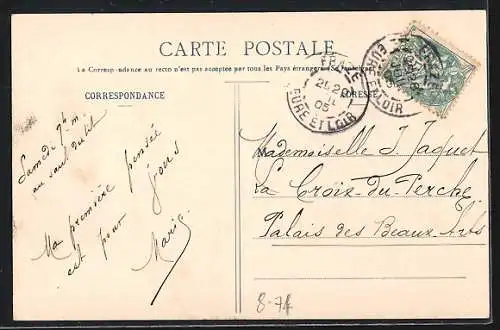 CARTE POSTALE
La Correspondance au recto n'est pas acceptée par tous les Pays étrangers
CORRESPONDANCE
ADRESSE
EURE ET LOIR
05
EURE ET LOIR
Samedi 7h m.
au saut du lit
Ma première pensée
est pour vous
Marie
Mademoiselle J. Jaquet
La Croix-du-Perche
Palais des Beaux-Arts
8-74